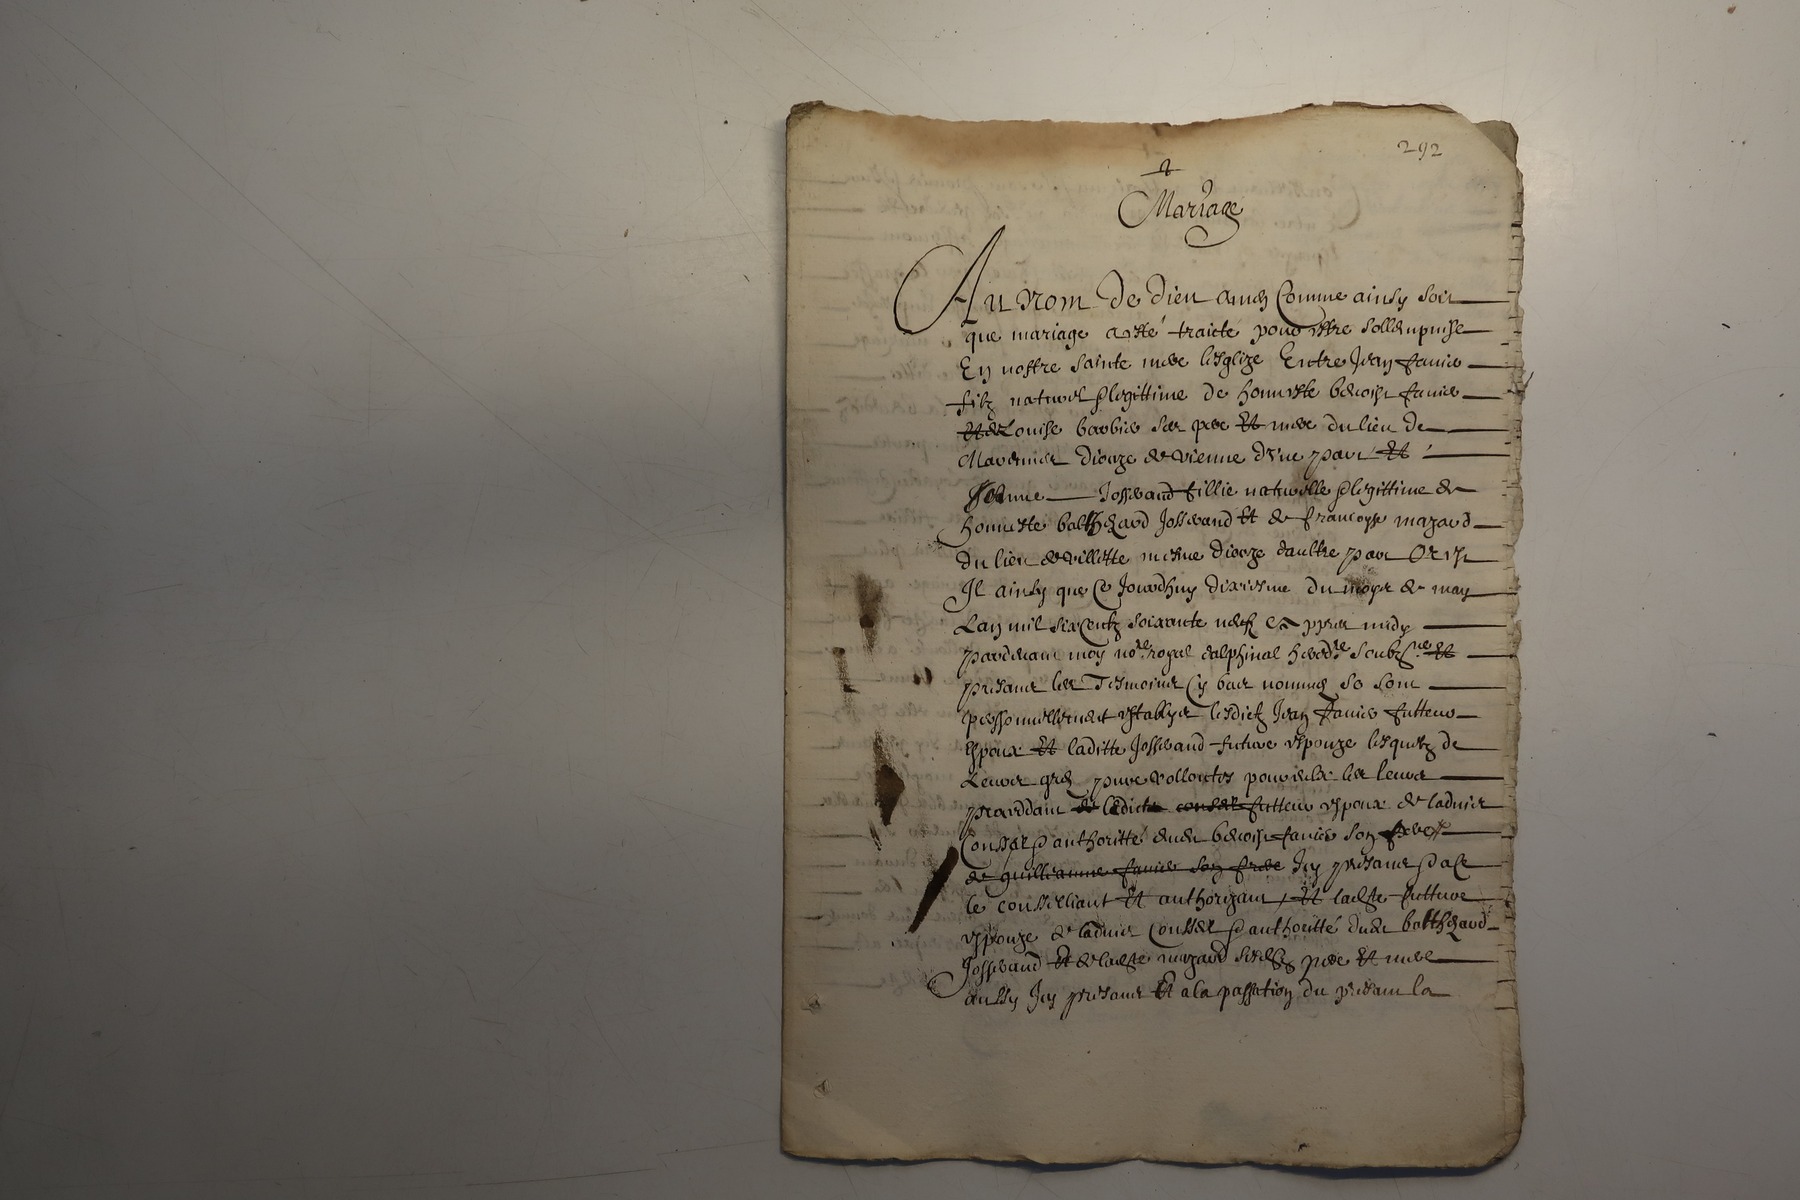 292
Mariage
Au nom de dieu amen Comme ainsy soit
que mariage a esté traicté pour estre sollempnise
En nostre sainte mere lesglize Entre Jean favier
filz naturel & legittime de honneste benoist favier
Et de Louise barbier ses pere Et mere du lieu de
diocze de vienne d'une part Et
Jeanne Josserand fillie naturelle & legittime de
honneste balthezard Josserand Et de francoyse mazard
du lieu de villette mesme diocze daultre part Or est
Il ainsy que Ce Jourdhuy dixiesme du moys de may
Lan mil six Centz soixante neuf & appres midy
pardevant moy no.re royal dalphinal hered.re soubz.né Et
presant les Tesmoins Cy bas nommes se sont
personnellement establys lesdictz Jean favier futteur
Espoux Et laditte Josserand future espouze lesquelz de
Leurs gres pures vollontes pour eulx les leurs
ledict futteur espoux de ladvis
Conseil & authoritté dudit benoist favier son pere
de guilliaume favier son frere Icy presant &
le conseilliant Et authorizant, Et ladite future
espouze de ladvis Conseil & authoritté dudit balthezard
Josserand Et de ladite mazard sesdictz pere Et mere
aussy Icy presant Et a la passation du presant la